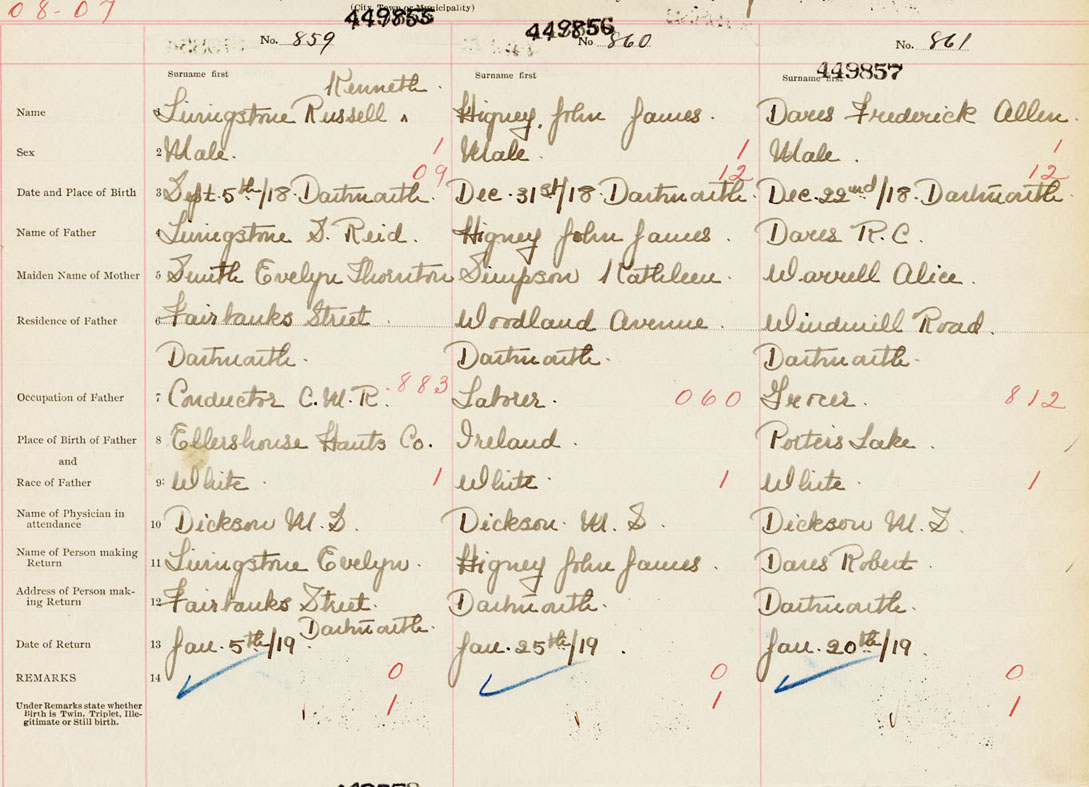 08-07
(City, Town or Municipality)
449855 449856
No. 859 No 860 No. 861
449857
Surname first Surname first Surname first
Kenneth
Name 1 Livingstone Russell ʌ Higney, John James. Dares Frederick Allen.
Sex 2 Male. 1 Male. 1 Male. 1
09 12 12
Date and Place of Birth 3 Sept. 5th/18. Dartmouth. Dec. 31st/18 Dartmouth. Dec. 22nd/18. Dartmouth.
Name of Father 4 Livingstone S. Reid. Higney John James. Dares R.C.
Maiden Name of Mother 5 Smith Evelyn Thornton Simpson Kathleen. Warrell Alice.
Residence of Father 6 Fairbanks Street. Woodland Avenue. Windmill Road.
Dartmouth. Dartmouth. Dartmouth.
Occupation of Father 7 Conductor C.M.R. 883 Laborer. 060 Grocer. 812
Place of Birth of Father 8 Ellershouse Hants Co. Ireland. Porters Lake.
and
Race of Father 9 White. 1 White. 1 White. 1
Name of Physician in
attendance 10 Dickson M.S. Dickson. M.S. Dickson M.S.
Name of Person making
Return 11 Livingstone Evelyn. Higney John James. Dares Robert.
Address of Person mak-
ing Return 12 Fairbanks Street. Dartmouth. Dartmouth.
Dartmouth.
Date of Return 13 Jan. 5th/19. Jan. 25th/19. Jan. 20th/19.
REMARKS 14 0 0 0
Under Remarks state whether
Birth is Twin, Triplet, Ille-
gitimate or Still birth. 1 1 1